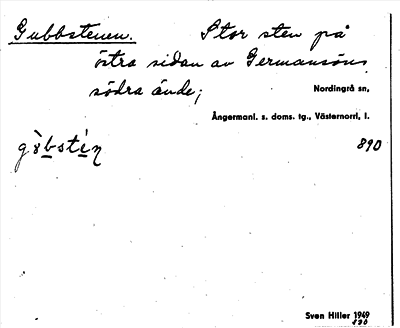 Gubbstenen. Stor sten på
östra sidan av Germansöns
södra ände;
Nordingrå sn,
Ångermanl. s. doms. tg., Västernorrl, l.
890
Sven Hiller 1949
890